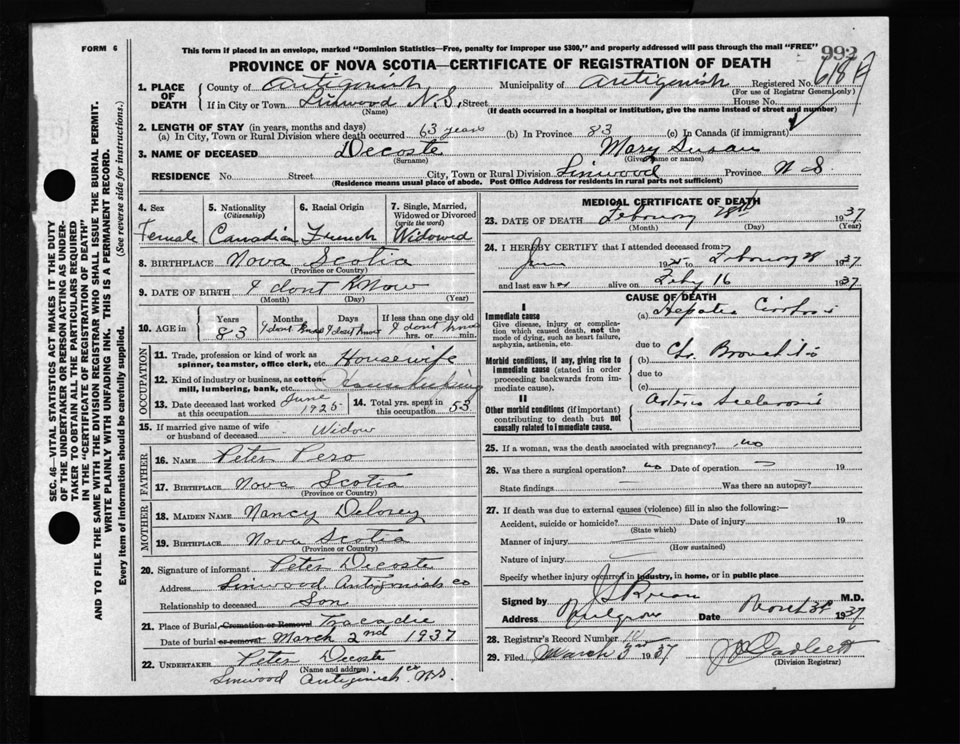 FORM 6
This form if placed in an envelope, marked "Dominion Statistics—Free, penalty for improper use $300," and properly addressed will pass through the mail "FREE"
992
PROVINCE OF NOVA SCOTIA—CERTIFICATE OF REGISTRATION OF DEATH
1. PLACE OF DEATH
County of Antigonish Municipality of Antigonish Registered No. 618
(For use of Registrar General only)
If in City or Town Linwood N.S. Street House No.
(Name) (If death occurred in a hospital or institution, give the name instead of street and number)
2. LENGTH OF STAY (in years, months and days)
(a) In City, Town or Rural Division where death occurred 63 years (b) In Province 83 (c) In Canada (if immigrant)
3. NAME OF DECEASED Decoste Mary Susan
(Surname) (Given name or names)
RESIDENCE No. Street City, Town or Rural Division Linwood Province N S.
(Residence means usual place of abode. Post Office Address for residents in rural parts not sufficient)
4. Sex 5. Nationality (Citizenship) 6. Racial Origin 7. Single, Married, Widowed or Divorced (write the word)
Female Canadian French Widowed
8. BIRTHPLACE Nova Scotia
(Province or Country)
9. DATE OF BIRTH I dont Know
(Month) (Day) (Year)
10. AGE in Years Months Days If less than one day old
83 I dont know I dont know I dont know hrs. or min.
OCCUPATION
11. Trade, profession or kind of work as spinner, teamster, office clerk, etc. Housewife
12. Kind of industry or business, as cotton-mill, lumbering, bank, etc. Housekeeping
13. Date deceased last worked at this occupation June 1925
14. Total yrs. spent in this occupation 53
15. If married give name of wife or husband of deceased Widow
FATHER
16. NAME Peter Pero
17. BIRTHPLACE Nova Scotia
(Province or Country)
MOTHER
18. MAIDEN NAME Nancy Delorey
19. BIRTHPLACE Nova Scotia
(Province or Country)
20. Signature of informant Peter Decoste
Address Linwood Antigonish co
Relationship to deceased Son
21. Place of Burial, Cremation or Removal Tracadie
Date of burial or removal March 2nd 1937
22. UNDERTAKER Peter Decoste
(Name and address)
Linwood Antigonish co N.S.
MEDICAL CERTIFICATE OF DEATH
23. DATE OF DEATH February 28th 1937
(Month) (Day) (Year)
24. I HEREBY CERTIFY that I attended deceased from:
19 to February 28 1937
and last saw her alive on Feby 16 1937
CAUSE OF DEATH
I
Immediate cause (a) Hepatic Cirrhosis
Give disease, injury or complication which caused death, not the mode of dying, such as heart failure, asphyxia, asthenia, etc.
due to
Morbid conditions, if any, giving rise to immediate cause (stated in order proceeding backwards from immediate cause).
(b) Chr. Bronchitis
due to
(c)
II
Other morbid conditions (if important) contributing to death but not causally related to immediate cause.
Arterio Sclerosis
25. If a woman, was the death associated with pregnancy? no
26. Was there a surgical operation? no Date of operation 19
State findings Was there an autopsy?
27. If death was due to external causes (violence) fill in also the following:—
Accident, suicide or homicide? Date of injury 19
(State which)
Manner of injury
(How sustained)
Nature of injury
Specify whether injury occurred in industry, in home, or in public place
Signed by M.D.
Address Mulgrave Date 1937
28. Registrar's Record Number
29. Filed March 1937
(Division Registrar)
SEC. 46—VITAL STATISTICS ACT MAKES IT THE DUTY
OF THE UNDERTAKER OR PERSON ACTING AS UNDER-
TAKER TO OBTAIN ALL THE PARTICULARS REQUIRED
IN THE "CERTIFICATE OF REGISTRATION OF DEATH"
AND TO FILE THE SAME WITH THE DIVISION REGISTRAR WHO SHALL ISSUE THE BURIAL PERMIT.
WRITE PLAINLY WITH UNFADING INK. THIS IS A PERMANENT RECORD.
Every item of information should be carefully supplied. (See reverse side for instructions.)